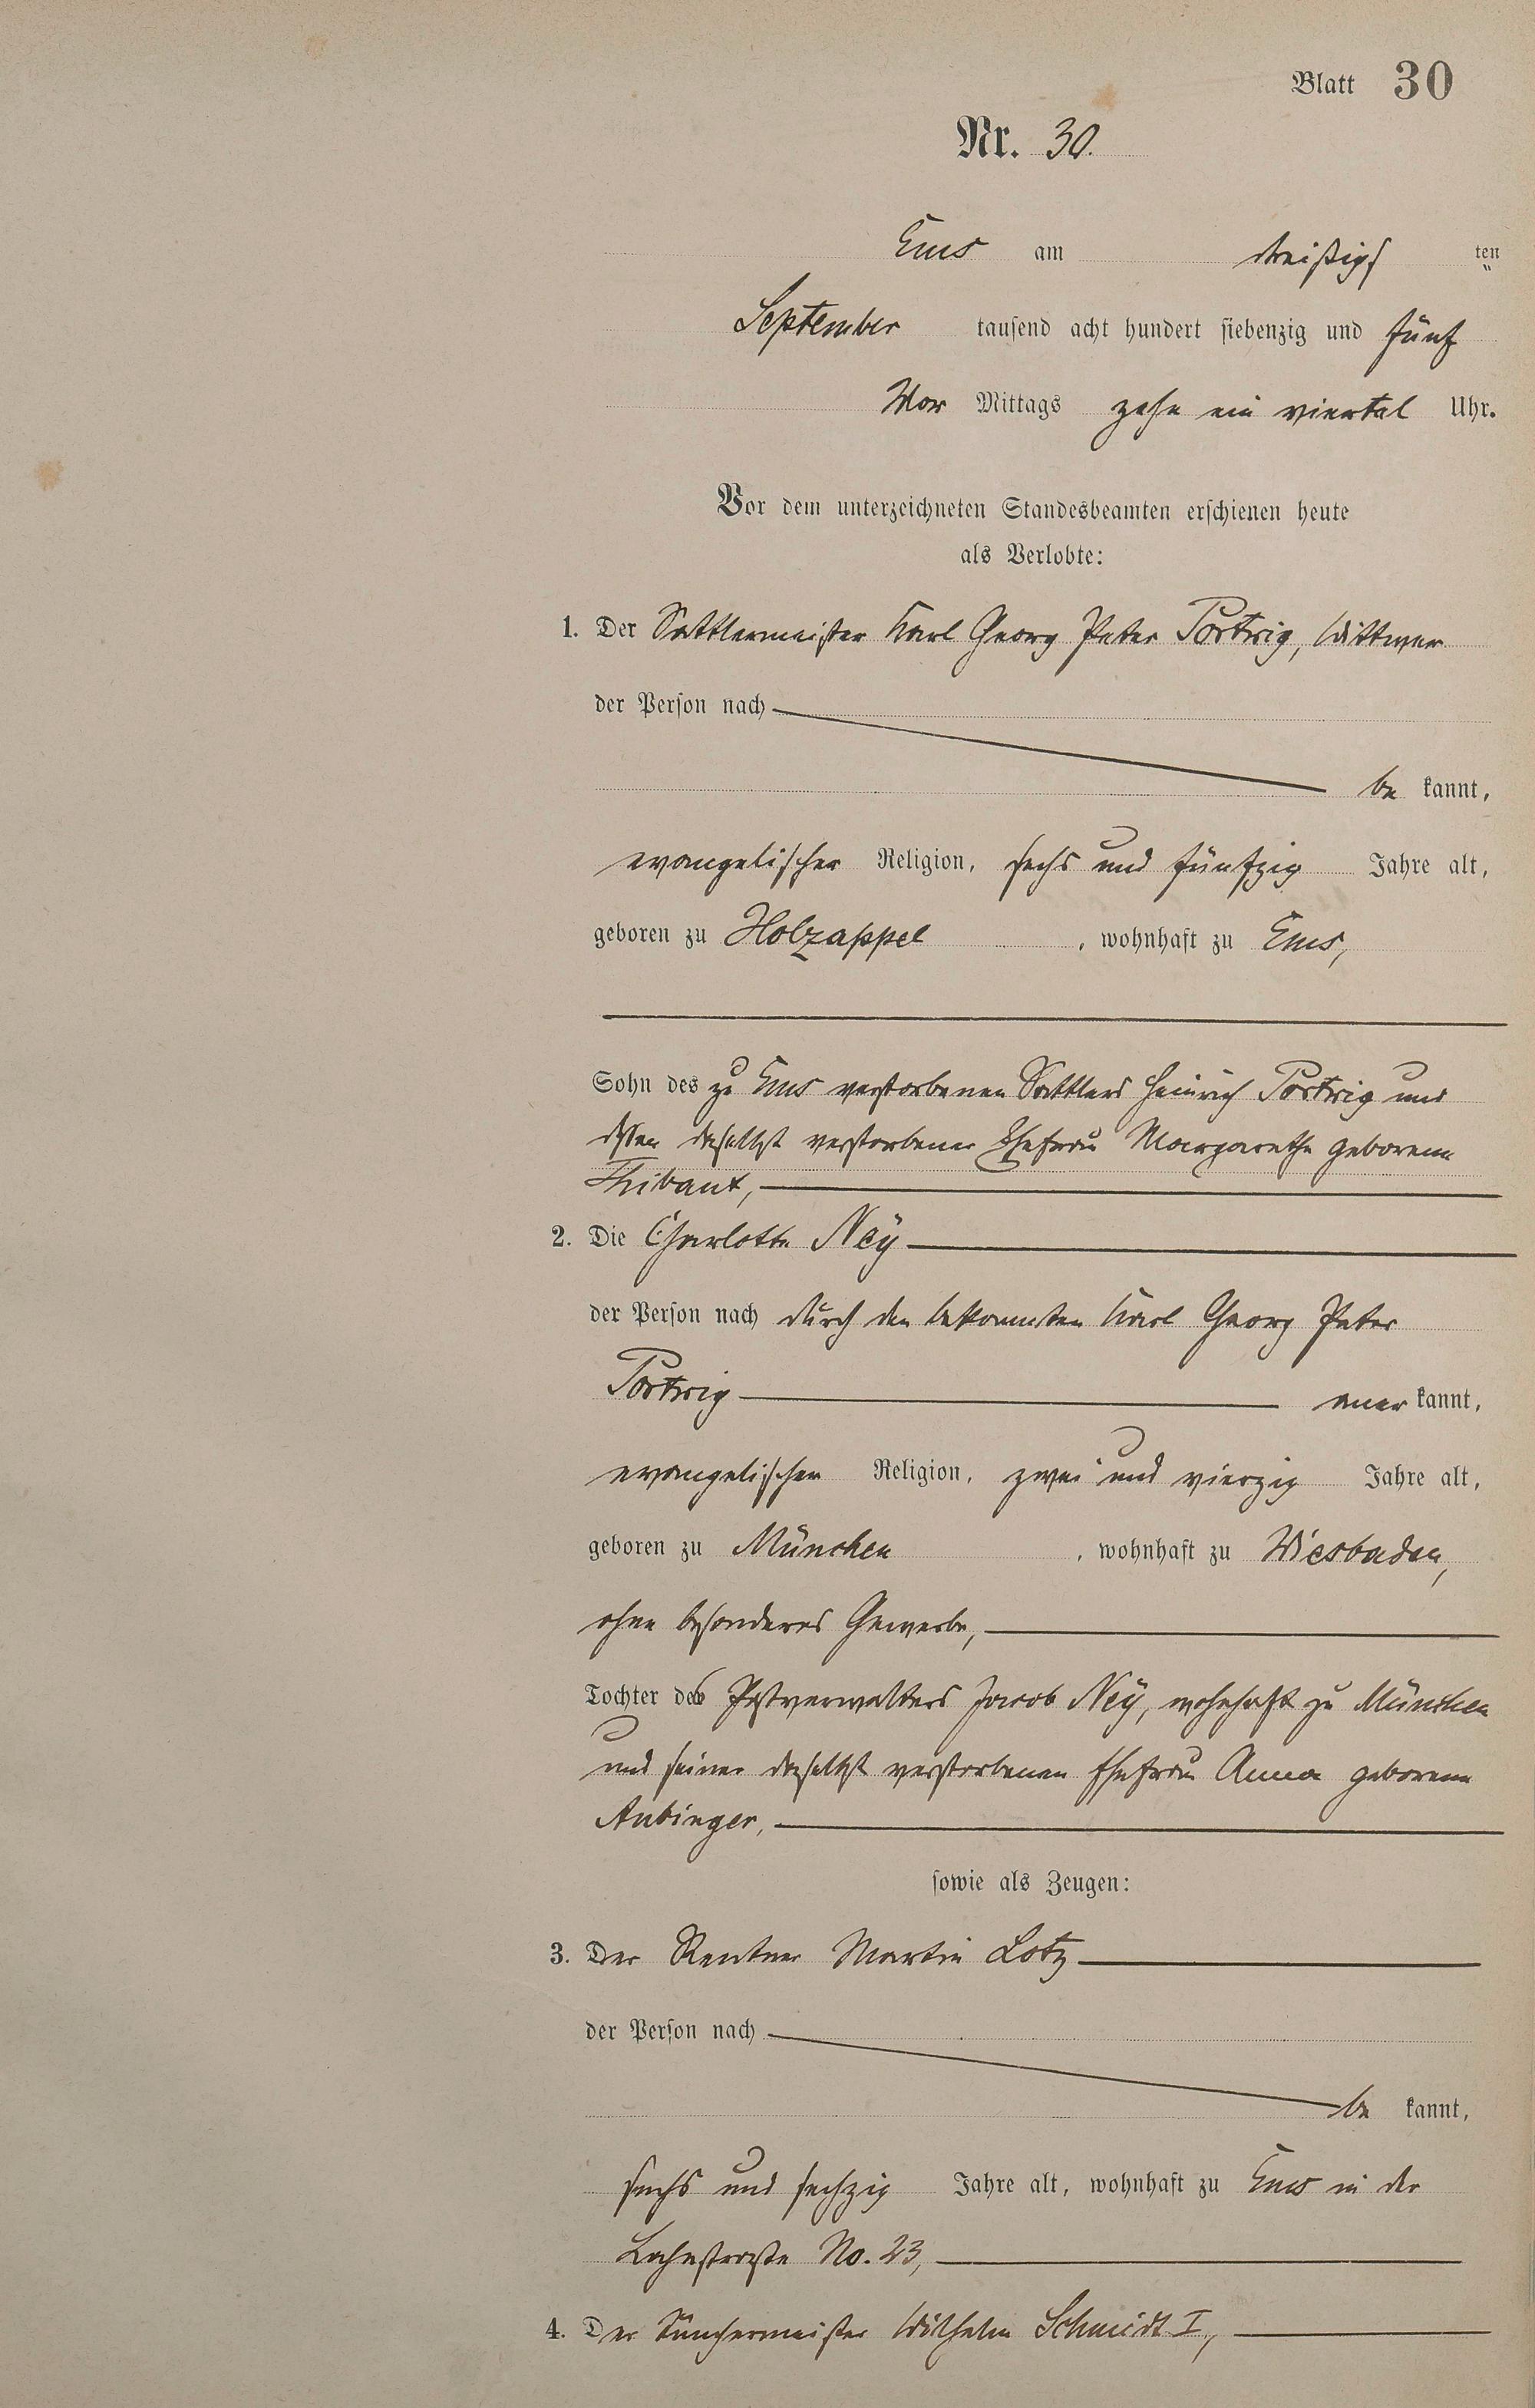 Blatt 30
Nr. 30.
Ems am dreißigs ten
September tausend acht hundert siebenzig und fünf
Vor Mittags zehn ein viertel Uhr.
Vor dem unterzeichneten Standesbeamten erschienen heute
als Verlobte:
1. Der Sattlermeister Karl Georg Peter Portwig, Wittwer
der Person nach
be kannt,
evangelischer Religion, sechs und fünfzig Jahre alt,
geboren zu Holzappel, wohnhaft zu Ems,
Sohn des zu Ems verstorbenen Sattlers Heinrich Portwig und
dessen daselbst verstorbener Ehefrau Margarethe geborene
Thibaut,
2. Die Charlotte Neÿ
der Person nach durch den bekannten Karl Georg Peter
Portwig aner kannt,
evangelischer Religion, zwei und vierzig Jahre alt,
geboren zu München, wohnhaft zu Wiesbaden,
ohne besonderes Gewerbe,
Tochter des Postverwalters Jacob Neÿ, wohnhaft zu München
und seiner daselbst verstorbenen Ehefrau Anna geborene
Aubinger,
sowie als Zeugen:
3. Der Rentner Martin Lotz
der Person nach
be kannt,
sechs und sechzig Jahre alt, wohnhaft zu Ems in der
Lahnstraße No. 23,
4. Der Tünchermeister Wilhelm Schmidt I,